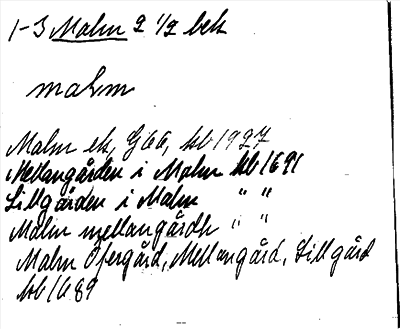 1-3 Malm 2 1/2 bek
malm
Malm ek, G66, kb 1927
Mellangården i Malm kb 1691
Lillgården i Malm " "
Malm mellangårdh " "
Malm Öfergård, Mellangård, Lillgård
kb 1689